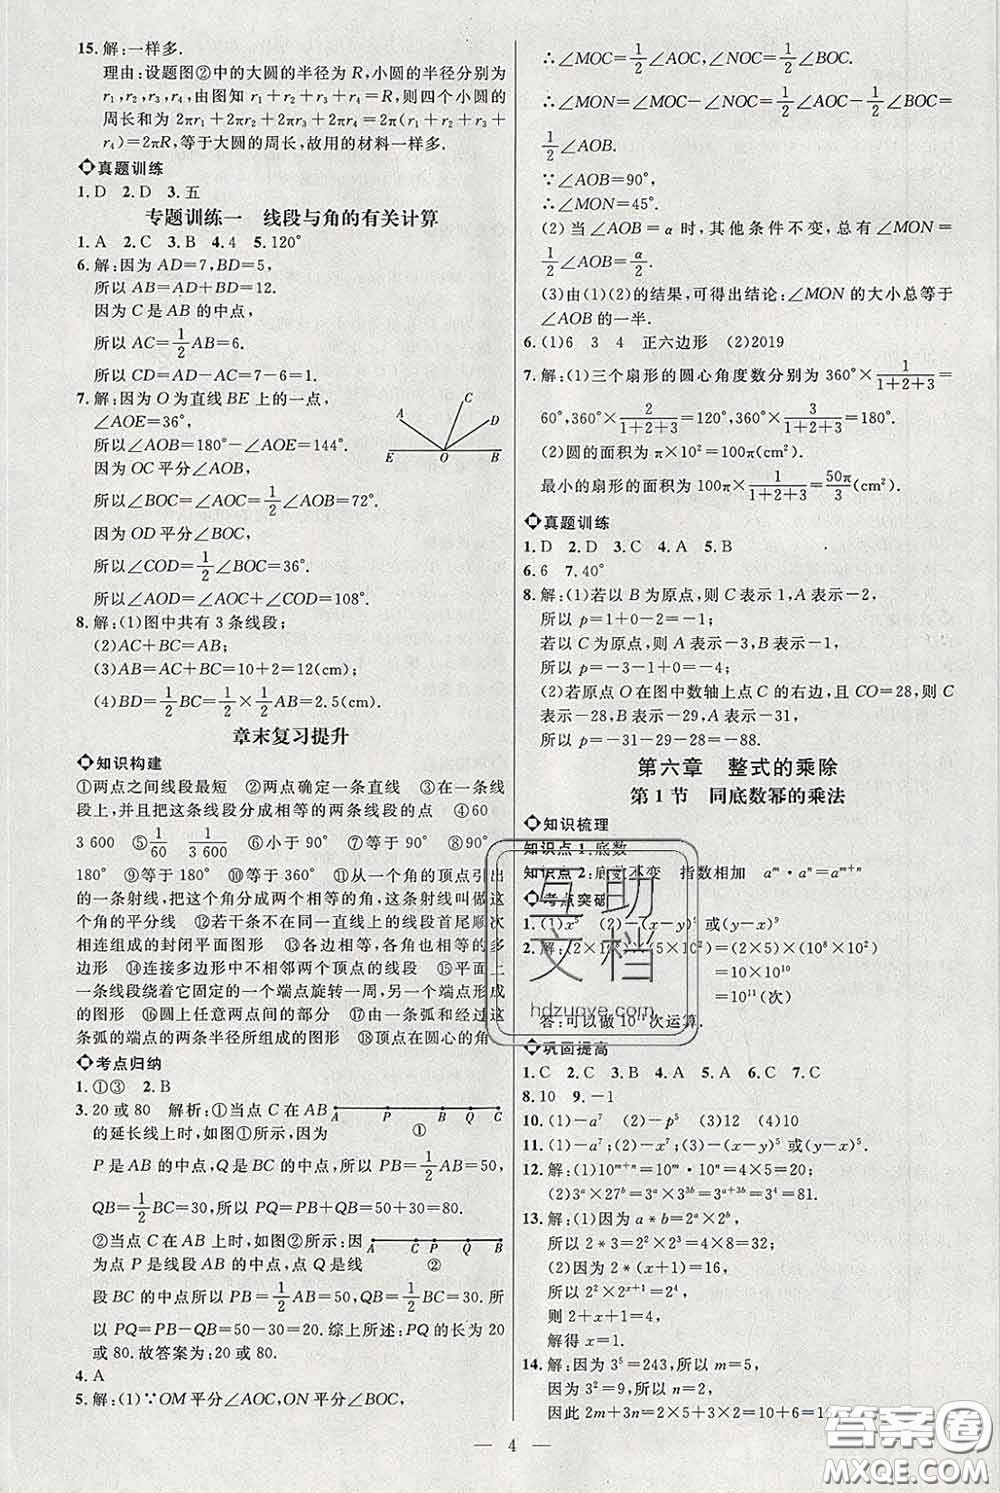 15.解:一样多.
理由:设题图②中的大圆的半径为R,小圆的半径分别为
r₁,r₂,r₃,r₄,由图知r₁+r₂+r₃+r₄=R,则四个小圆的
周长和为2πr₁+2πr₂+2πr₃+2πr₄=2π(r₁+r₂+r₃+
r₄)=2πR,等于大圆的周长,故用的材料一样多.
真题训练
1.D 2.D 3.五
专题训练一 线段与角的有关计算
1.A 2.C 3.B 4.4 5.120°
6.解:因为AD=7,BD=5,
所以AB=AD+BD=12.
因为C是AB的中点,
所以AC=1/2AB=6.
所以CD=AD-AC=7-6=1.
7.解:因为O为直线BE上的一点,
∠AOE=36°,
所以∠AOB=180°-∠AOE=144°.
因为OC平分∠AOB,
所以∠BOC=∠AOC=1/2∠AOB=72°.
因为OD平分∠BOC,
所以∠COD=1/2∠BOC=36°.
所以∠AOD=∠AOC+∠COD=108°.
A C D E O B
8.解:(1)图中共有3条线段;
(2)AC+BC=AB;
(3)AB=AC+BC=10+2=12(cm);
(4)BD=1/2BC=1/2×1/2AB=2.5(cm).
章末复习提升
知识构建
①两点之间线段最短 ②两点确定一条直线 ③在线段
上,并且把这条线段分成相等的两条线段的点 ④60
3 600 ⑤1/60 1/3 600 ⑥小于90° ⑦等于90° ⑧90°
180° ⑨等于180° ⑩等于360° ⑪从一个角的顶点引出
的一条射线,把这个角分成两个相等的角,这条射线叫做这
个角的平分线 ⑫若干条不在同一直线上的线段首尾顺次
相连组成的封闭平面图形 ⑬各边相等,各角也相等的多
边形 ⑭连接多边形中不相邻两个顶点的线段 ⑮平面上,
一条线段绕着它固定的一个端点旋转一周,另一端点形成
的图形 ⑯圆上任意两点间的部分 ⑰由一条弧和经过这
条弧的端点的两条半径所组成的图形 ⑱顶点在圆心的角
考点归纳
1.①③ 2.B
3.20或80 解析:①当点C在AB
的延长线上时,如图①所示,因为
A P B Q C
①
P是AB的中点,Q是BC的中点,所以PB=1/2AB=50,
QB=1/2BC=30,所以PQ=PB+QB=50+30=80.
②当点C在AB上时,如图②所示:因
为点P是线段AB的中点,点Q是线
A C P Q B
②
段BC的中点所以PB=1/2AB=50,QB=1/2BC=30.所
以PQ=PB-QB=50-30=20.综上所述:PQ的长为20
或80.故答案为:20或80.
4.A
5.解:(1)∵OM平分∠AOC,ON平分∠BOC,
∴∠MOC=1/2∠AOC,∠NOC=1/2∠BOC.
∴∠MON=∠MOC-∠NOC=1/2∠AOC-1/2∠BOC=
1/2∠AOB.
∵∠AOB=90°,
∴∠MON=45°.
(2)当∠AOB=α时,其他条件不变,总有∠MON=
1/2∠AOB=α/2.
(3)由(1)(2)的结果,可得出结论:∠MON的大小总等于
∠AOB的一半.
6.(1)6 3 4 正六边形 (2)2019
7.解:(1)三个扇形的圆心角度数分别为360°×1/(1+2+3)=
60°,360°×2/(1+2+3)=120°,360°×3/(1+2+3)=180°.
(2)圆的面积为π×10²=100π(cm²).
最小的扇形的面积为100π×1/(1+2+3)=50π/3(cm²).
真题训练
1.D 2.D 3.C 4.A 5.B
6.6 7.40°
8.解:(1)若以B为原点,则C表示1,A表示-2,
所以p=1+0-2=-1;
若以C为原点,则A表示-3,B表示-1,
所以p=-3-1+0=-4;
(2)若原点O在图中数轴上点C的右边,且CO=28,则C
表示-28,B表示-29,A表示-31,
所以p=-31-29-28=-88.
第六章 整式的乘除
第1节 同底数幂的乘法
知识梳理
知识点1:底数
知识点2:底数不变 指数相加 aᵐ·aⁿ=aᵐ⁺ⁿ
考点突破
1.(1)x⁵ (2)-(x-y)⁵或(y-x)⁵
2.解:(2×10⁸)×(5×10²)=(2×5)×(10⁸×10²)
=10×10¹⁰
=10¹¹(次)
答:可以做10¹¹次运算.
巩固提高
1.C 2.C 3.C 4.A 5.C 6.C 7.C
8.10 9.-1
10.(1)-a⁷ (2)-p⁵ (3)12 (4)10
11.(1)-a⁷;(2)-x⁷;(3)-(x-y)⁵或(y-x)⁵.
12.解:(1)10ᵐ⁺ⁿ=10ᵐ·10ⁿ=4×5=20;
(2)3ᵃ×27ᵇ=3ᵃ×3³ᵇ=3ᵃ⁺³ᵇ=3⁴=81.
13.解:(1)因为a*b=2ᵃ×2ᵇ,
所以2*3=2²×2³=4×8=32;
(2)因为2*(x+1)=16,
所以2²×2ˣ⁺¹=2⁴,
则2+x+1=4,
解得x=1.
14.解:因为3⁵=243,所以m=5,
因为3²=9,所以n=2,
因此2m+3n=2×5+3×2=10+6=1
— 4 —
互助
文档
hdzuoye.com
答案圈
MXQE.COM